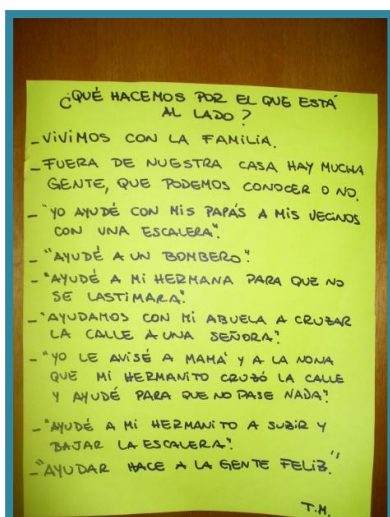 ¿QUÉ HACEMOS POR EL QUE ESTÁ
AL LADO?
- VIVIMOS CON LA FAMILIA.
- FUERA DE NUESTRA CASA HAY MUCHA
GENTE, QUE PODEMOS CONOCER O NO.
- "YO AYUDÉ CON MIS PAPÁS A MIS VECINOS
CON UNA ESCALERA".
- "AYUDÉ A UN BOMBERO".
- "AYUDÉ A MI HERMANA PARA QUE NO
SE LASTIMARA".
- "AYUDAMOS CON MI ABUELA A CRUZAR
LA CALLE A UNA SEÑORA".
- "YO LE AVISÉ A MAMÁ Y A LA NONA
QUE MI HERMANITO CRUZÓ LA CALLE
Y AYUDÉ PARA QUE NO PASE NADA".
- "AYUDÉ A MI HERMANITO A SUBIR Y
BAJAR LA ESCALERA".
- "AYUDAR HACE A LA GENTE FELIZ."
T.M.